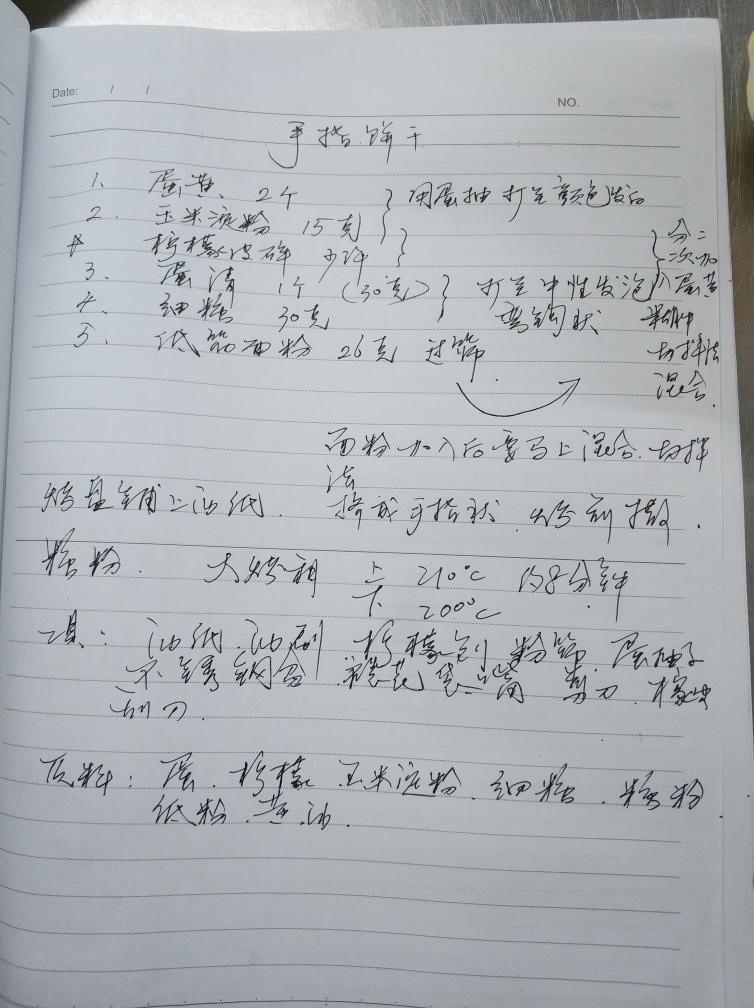 Date: / /
NO.
手指饼干
1. 蛋黄 2个 } 用蛋抽打至颜色发白
2. 玉米淀粉 15克
* 柠檬皮碎 少许
3. 蛋清 1个 (30克) } 打至中性发泡
4. 细糖 30克 弯钩状
} 分二
次加
入蛋黄
糊中
切拌法
混合.
5. 低筋面粉 26克 过筛
面粉加入后要马上混合.切拌
法
烤盘铺上油纸. 挤成手指状 烤前撒.
糖粉. 大烤箱 上 210℃ 约8分钟
下 200℃
工具: 油纸.油刷 柠檬刨 粉筛. 蛋抽子
不锈钢盆 裱花袋 嘴 剪刀. 橡皮
刮刀.
原料: 蛋. 柠檬. 玉米淀粉. 细糖. 糖粉
低粉. 黄油.